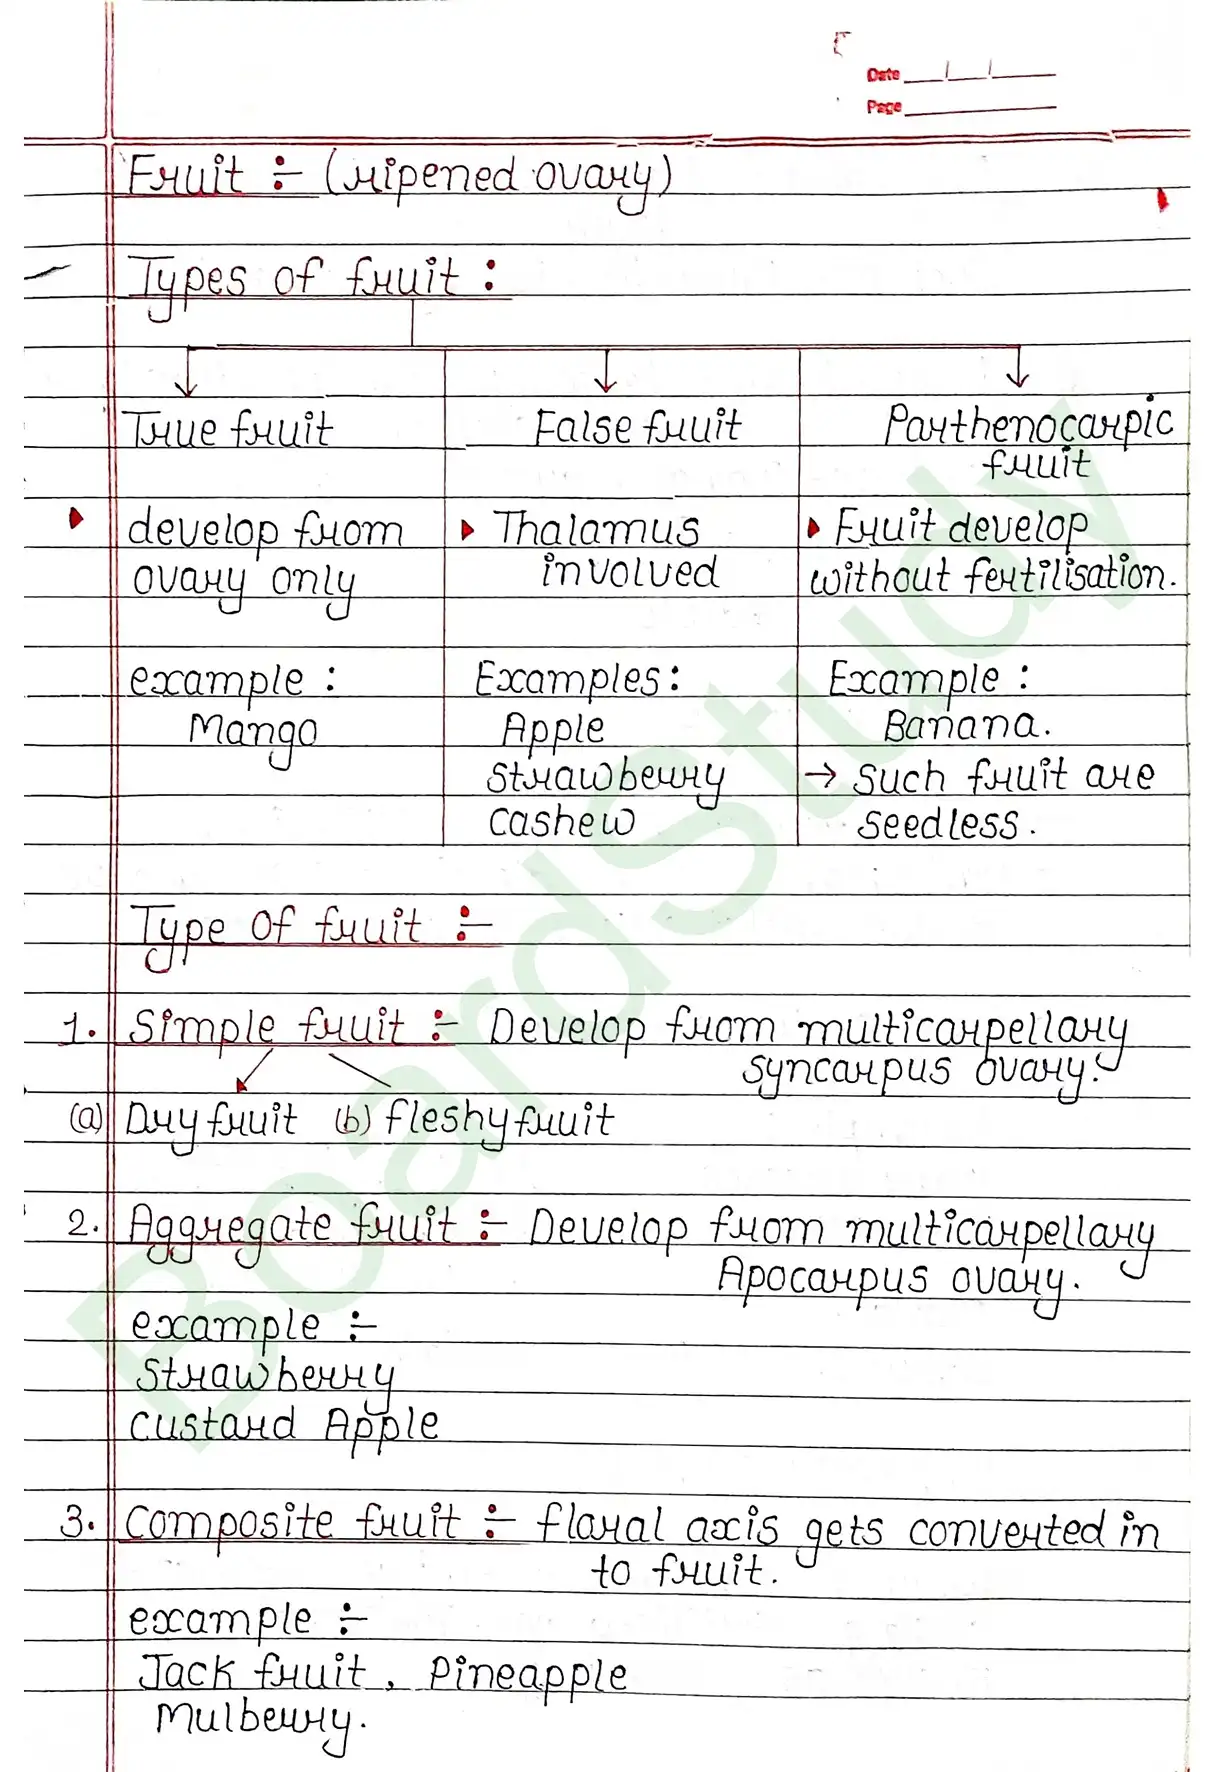 Date
Page
Fruit :- (ripened ovary)
Types of fruit :
True fruit
False fruit
Parthenocarpic
fruit
develop from
ovary only
Thalamus
involved
Fruit develop
without fertilisation.
example :
Mango
Examples :
Apple
Strawberry
Cashew
Example :
Banana.
→ Such fruit are
seedless.
Type Of fruit :-
1. Simple fruit :- Develop from multicarpellary
syncarpus ovary.
(a) Dry fruit (b) fleshy fruit
2. Aggregate fruit :- Develop from multicarpellary
Apocarpus ovary.
example :-
Strawberry
Custard Apple
3. Composite fruit :- floral axis gets converted in
to fruit.
example :-
Jack fruit, Pineapple
Mulberry.
BoardStudy